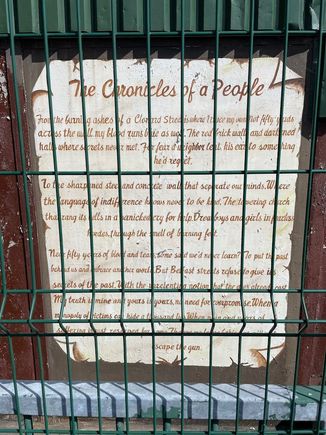 The Chronicles of a People
From the burning ashes of a Clonard Street where I trace my own. Not fifty yards
across the wall, my blood runs blue as well. The red brick walls and darkened
halls where secrets never met. For fear a neighbor tent his ear to something
he'd regret.
To the sharpened steel and concrete walls that separate our minds. Where
the language of indifference knows never to be kind. The towering church
that rang its bells in a panicked cry for help. Drew boys and girls in careless
hordes, through the smell of burning felt.
Now fifty years of blood and tears, some said we'd never learn? To put the past
behind us and embrace and her world. But Belfast streets refuse to give its
secrets of the past. With the unrelenting notion that the die's already cast.
My truth is mine and yours is yours, no need for compromise. When a
monopoly of victims can hide a thousand lies. When
suffering
escape the gun.